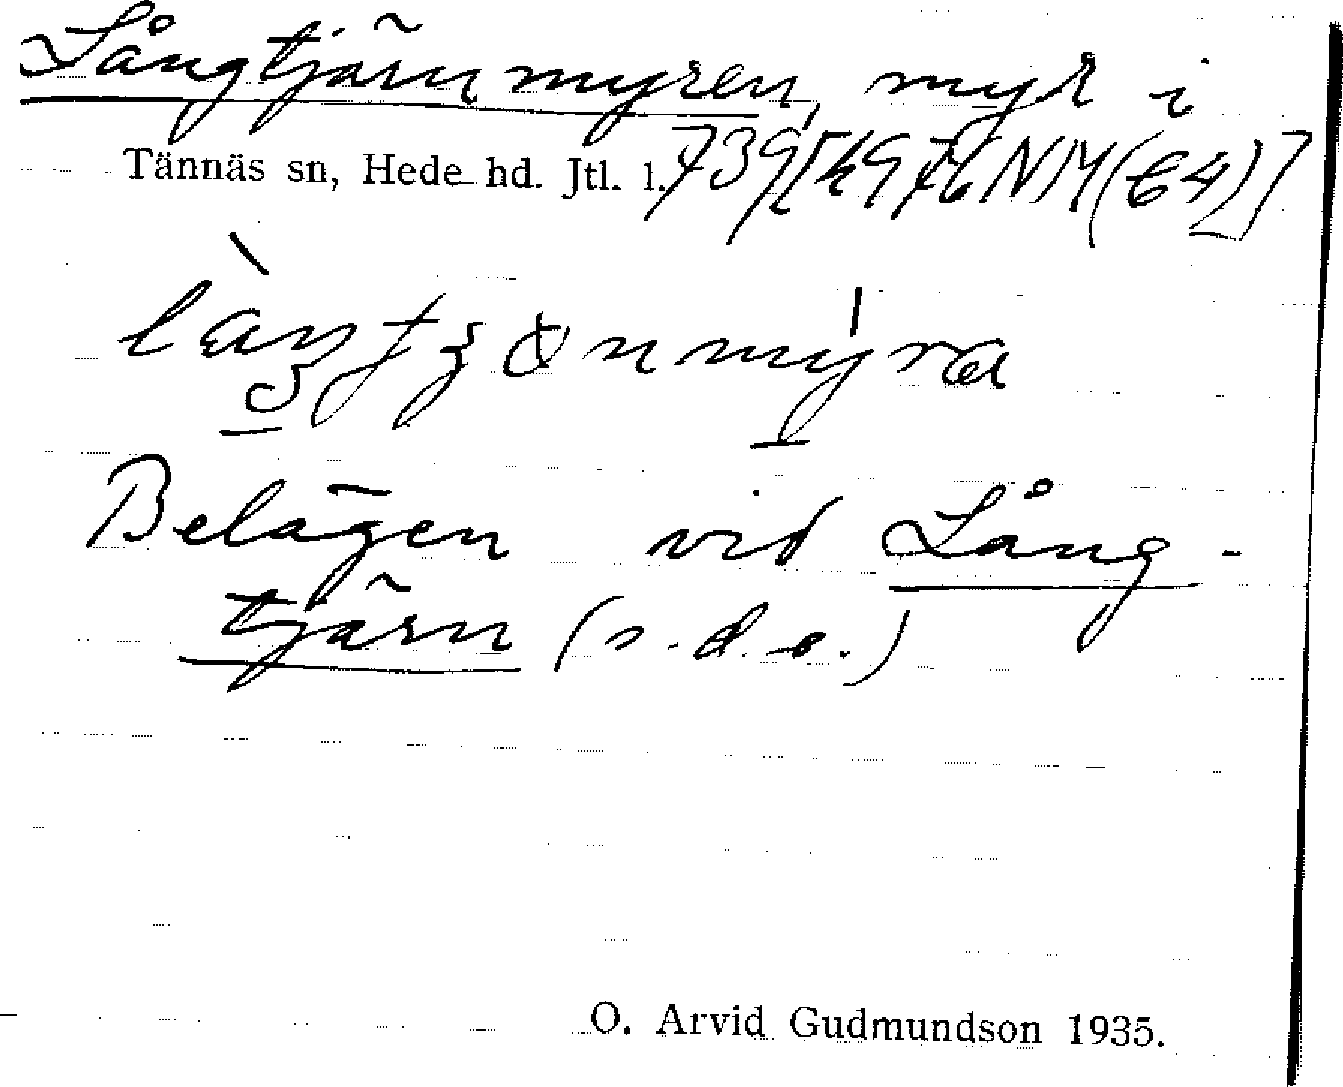 Långtjärnmyren, myr i
Tännäs sn, Hede hd. Jtl. l. 739
Belägen vid Lång-
tjärn (s.d.o.)
O. Arvid Gudmundson 1935.